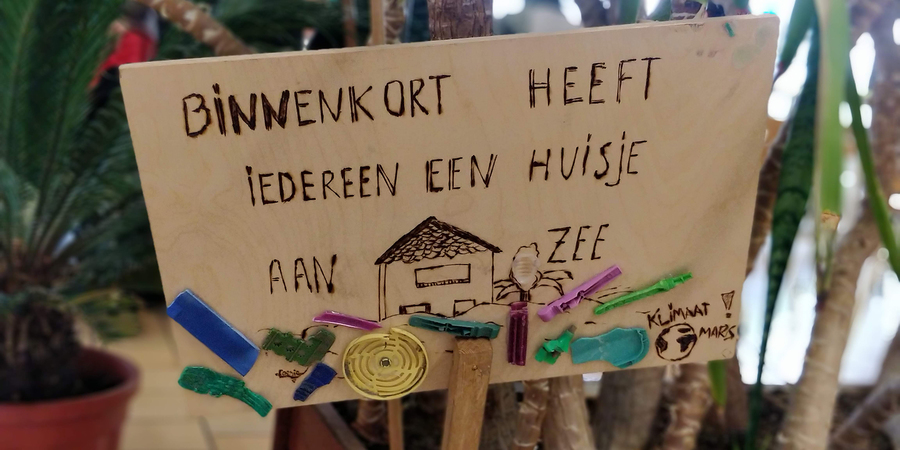 BINNENKORT HEEFT
IEDEREEN EEN HUISJE
AAN ZEE
KLIMAAT
MARS!